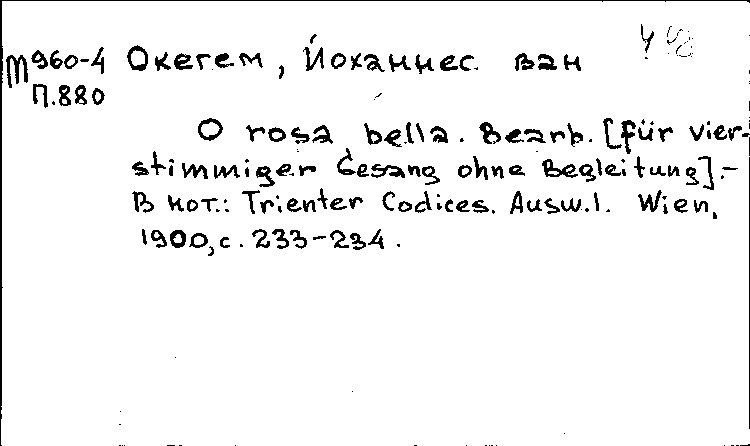 М960-4 Окегем, Йоханнес ван
П.880
O rosa bella. Bearb. [für vier-
stimmiger Gesang ohne Begleitung].-
В нот.: Trienter Codices. Ausw.1. Wien,
1900, с. 233-234.